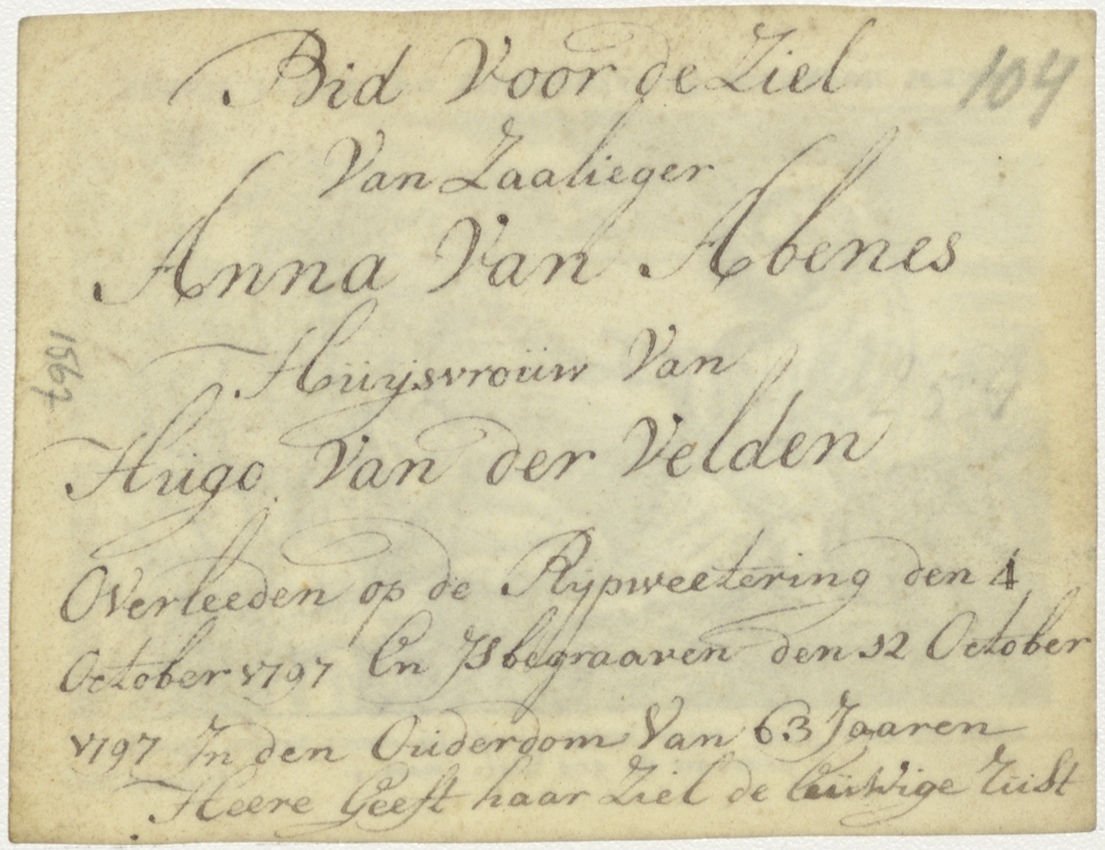 Bid Voor de Ziel
104
Van Zaalieger
Anna Van Abenes
Huijsvrouw Van
1567
Hugo Van der Velden
Overleeden op de Rijpweetering den 4
October 1797 En Js begraaven den 12 October
1797 In den Ouderdom Van 63 Jaaren
Heere Geeft haar Ziel de Euwige Rust